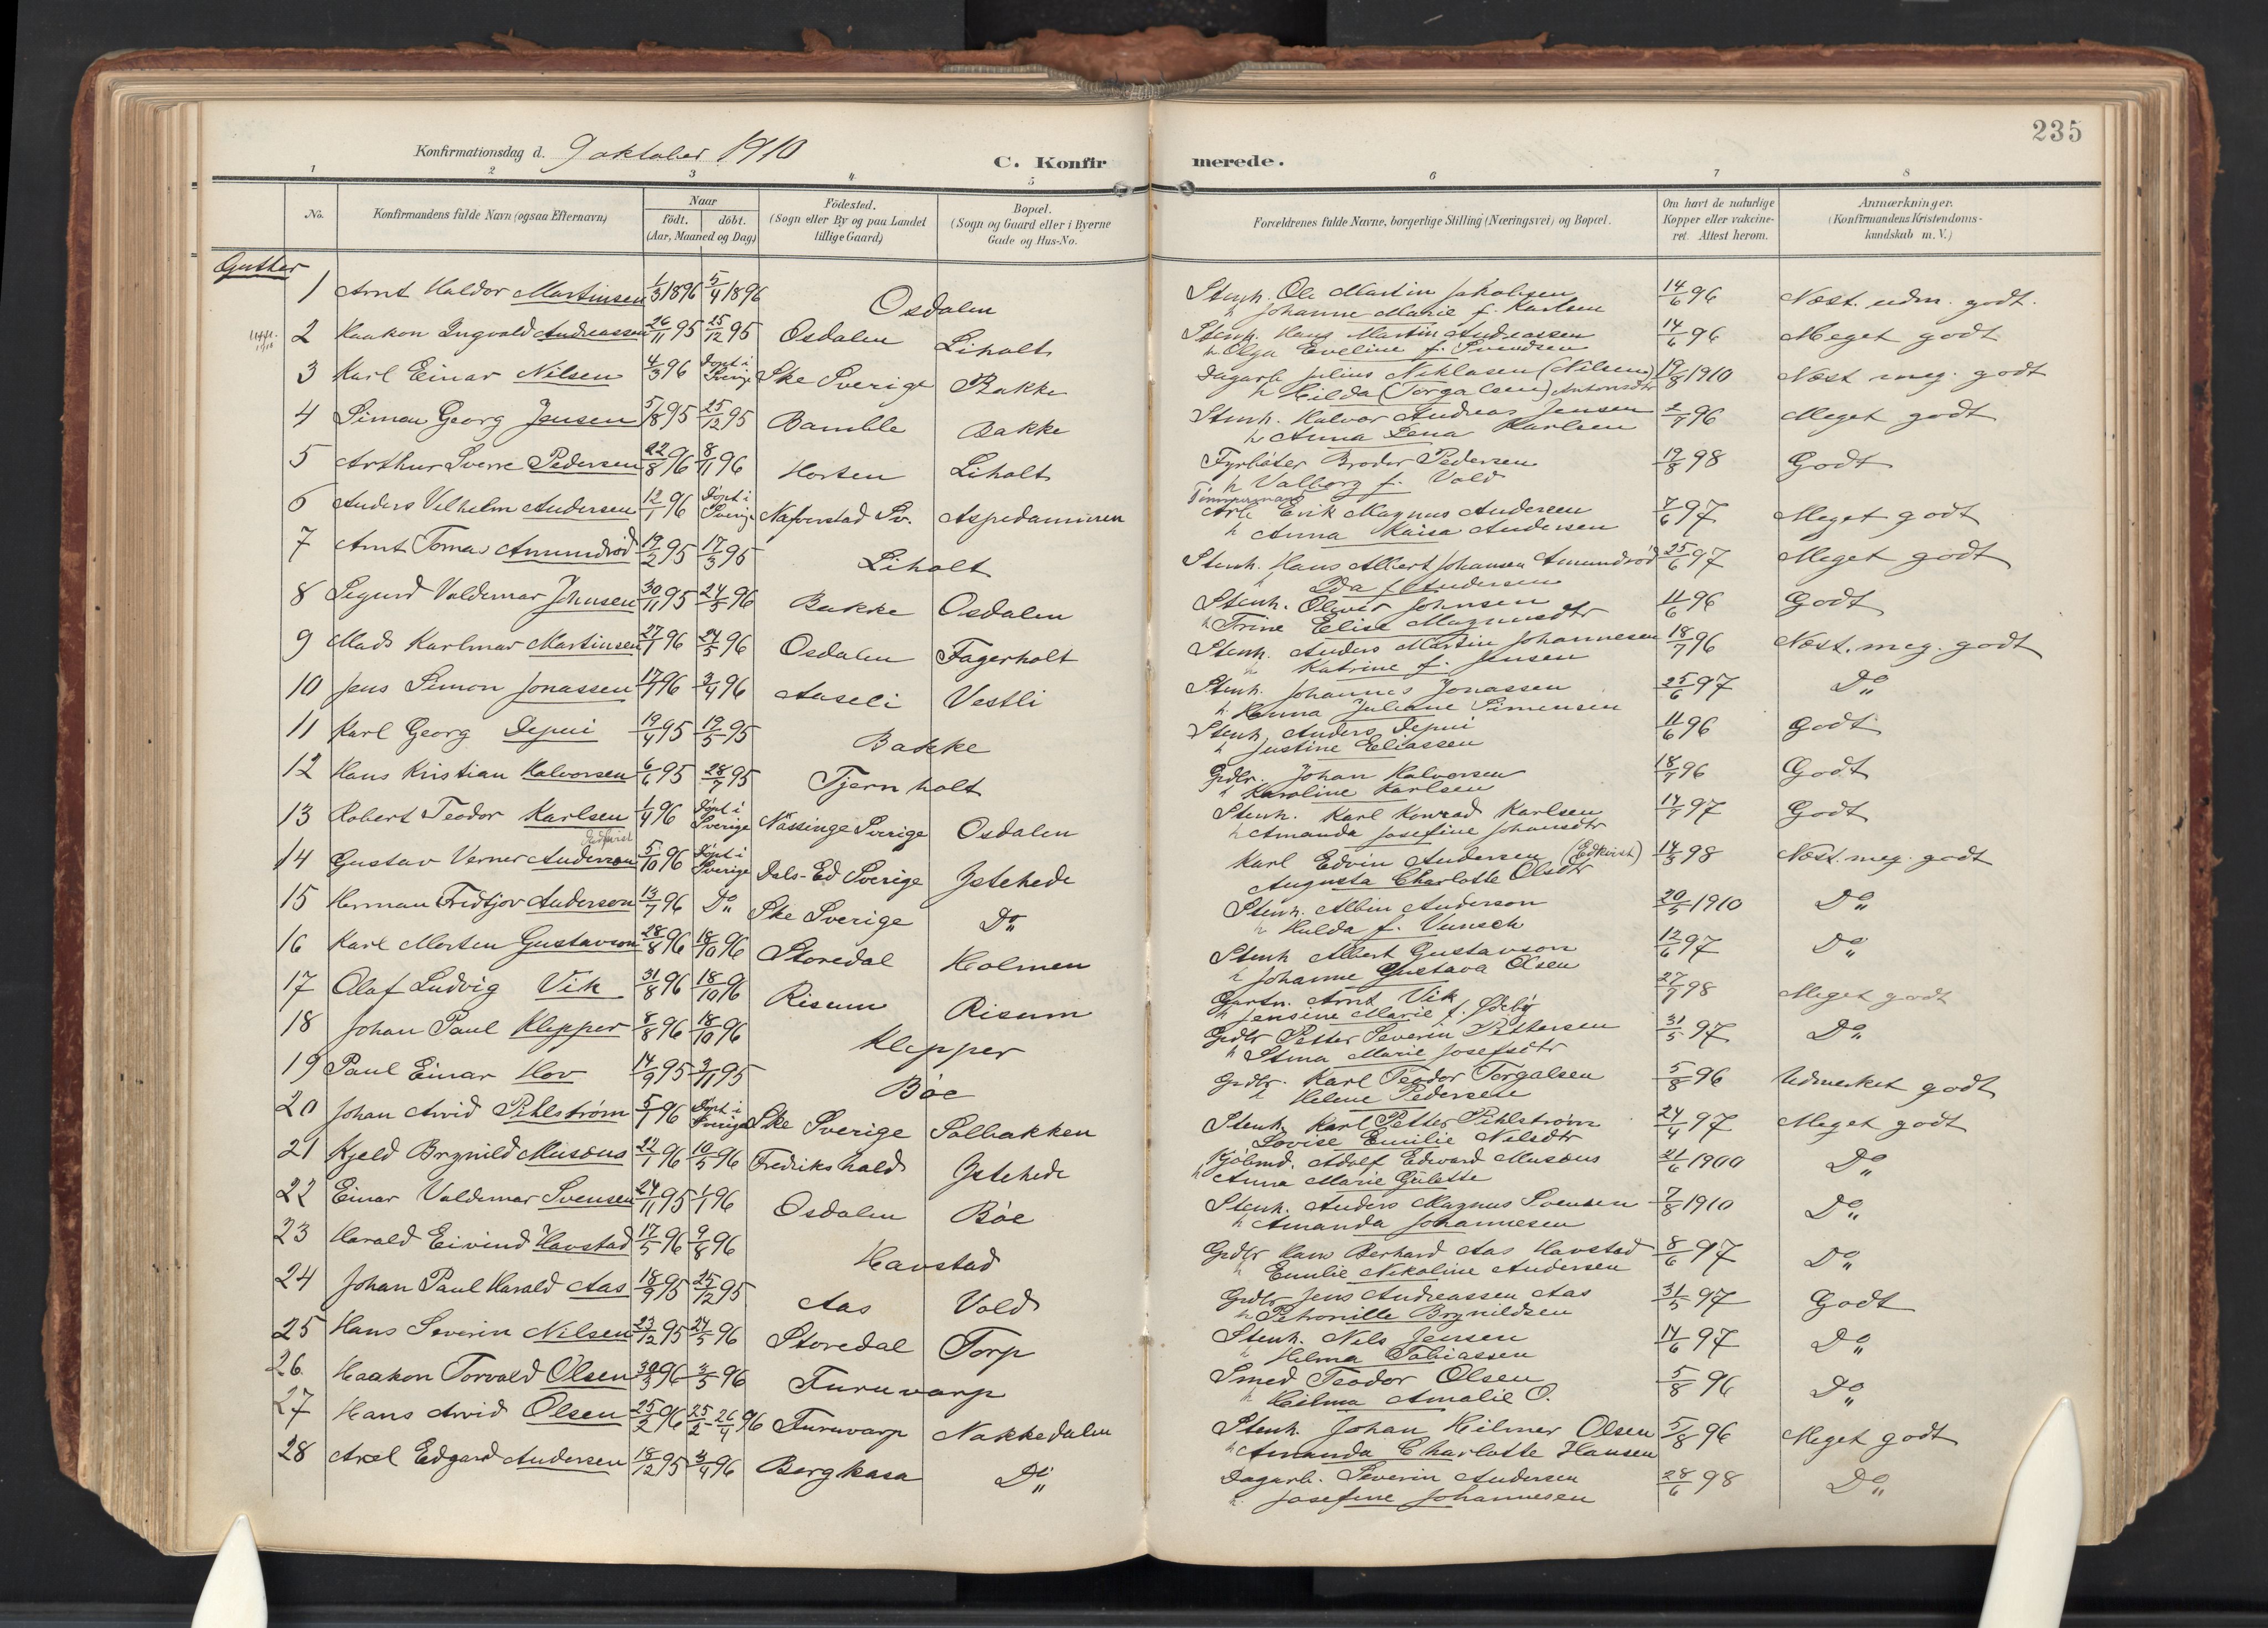 235
Konfirmationsdag d. 9 oktober 1910
C. Konfir merede.
1 2 3 4 5 6 7 8
No.
Konfirmandens fulde Navn (ogsaa Efternavn)
Naar
födt. döbt.
(Aar, Maaned og Dag)
Födested.
(Sogn eller By og paa Landet
tillige Gaard)
Bopæl.
(Sogn og Gaard eller i Byerne
Gade og Hus-No.
Forældrenes fulde Navne, borgerlige Stilling (Næringsvei) og Bopæl.
Om havt de naturlige
Kopper eller vakcine-
ret. Attest herom.
Anmærkninger.
(Konfirmandens Kristendoms-
kundskab m. V.)
Gutter
1 Arnt Haldor Martinsen 1/3 1896 5/4 1896 Osdalen Stenh. Ole Martin Jakobsen 14/6 96 Næst. udm. godt.
h Johanne Marie f. Karlsen
2 Haakon Ingvald Andreassen 26/11 95 25/12 95 Osdalen Liholt Stenh. Hans Martin Andreassen 14/6 96 Meget godt
h Olga Eveline f. Svendsen
3 Karl Einar Nilsen 4/3 96 Döpt i Sverige Ske Sverige Bakke Dagarb Julius Niklasen (Nilsen) 19/8 1910 Næst meg. godt
h Hilda (Torgalsen) Antonsdtr
4 Simon Georg Jensen 5/8 95 25/12 95 Bamble Bakke Stenh. Halvor Andreas Jensen 96 Meget godt
h Anna Lena Karlsen
5 Arthur Sverre Pedersen 22/8 96 8/11 96 Horten Liholt Fyrböter Brodor Pedersen 19/8 98 Godt
h Valborg f. Vold
6 Anders Vilhelm Andersen 12/1 96 Döpt i Sverige Nafverstad Sv. Aspedammen Tömmermand
Arb Erik Magnus Andersen 7/6 97 Meget godt
h Anna Kaisa Andersen
7 Arnt Tomas Amundröd 19/2 95 17/3 95 Liholt Stenh. Hans Albert Johansen Amundröd 25/6 97 Meget godt
h Ida f Andersen
8 Sigurd Valdemar Johnsen 30/11 95 24/5 96 Bakke Osdalen Stenh. Oliver Johnsen 11/6 96 Godt
h Trine Elise Magnusdtr
9 Mads Karlmar Martinsen 27/1 96 24/5 96 Osdalen Fagerholt Stenh. Anders Martin Johannesen 18/7 96 Næst. meg. godt
h Katrine f. Jensen
10 Jens Simon Jonassen 17/1 96 3/4 96 Aaseli Vestli Stenh. Johannes Jonassen 25/6 97 Do
h. Hanna Juliane Simensen
11 Karl Georg Depui 19/4 95 19/5 95 Bakke Stenh. Anders Depui 11/6 96 Godt
h Justine Eliassen
12 Hans Kristian Halvorsen 6/6 95 28/7 95 Tjernholt Grdbr. Johan Halvorsen 18/7 96 Godt
h Karoline Karlsen
13 Robert Teodor Karlsen 1/4 96 Döpt i Sverige Nässinge Sverige Osdalen Stenh. Karl Konrad Karlsen 14/7 97 Godt
h Amanda Josefine Johansdtr
Edkvist
14 Gustav Verner Anderson 5/10 96 Döpt i Sverige Dals-Ed Sverige Istehede Karl Edvin Andersen (Edkvist) 14/5 98 Næst. meg. godt
Augusta Charlotte Olsdtr
15 Herman Fridtjov Anderson 13/7 96 Do Ske Sverige Do Stenh. Albin Anderson 20/5 1910 Do
h Hulda f. Vunsch
16 Karl Morten Gustavson 28/8 96 18/10 96 Storedal Holmen Stenh Albert Gustavson 12/6 97 Do
h Johanne Gustava Olsen
17 Olaf Ludvig Vik 31/8 96 18/10 96 Risum Risum Gartn. Arnt Vik 27/7 98 Meget godt
h Jensine Marie f.
18 Johan Paul Klepper 8/8 96 18/10 96 Klepper Grdbr Petter Severin Pettersen 31/5 97 Do
h Stina Marie Josefsdtr
19 Paul Einar Hov 14/9 95 3/11 95 Böe Grdbr. Karl Teodor Torgalsen 5/8 96 Udmerket godt
h Helene Pedersen
20 Johan Arvid Pihlström 5/1 96 Döpt i Sverige Ske Sverige Solbakken Stenh Karl Petter Pihlström 24/4 97 Meget godt
Lovise Emilie Nilsdtr
21 Kjeld Brynild Musæus 22/1 96 10/5 96 Fredrikshald Istehede Kjöbmd. Adolf Edvard Musæus 21/6 1900 Do
h Anna Marie Gulette
22 Einar Valdemar Svensen 24/11 95 1/1 96 Osdalen Böe Stenh. Anders Magnus Svensen 7/8 1910 Do
h Amanda Johannesen
23 Harald Eivind Havstad 17/5 96 9/8 96 Havstad Grdbr Hans Berhard Aas Havstad 8/6 97 Do
h Emilie Nikoline Andersen
24 Johan Paul Harald Aas 18/9 95 25/12 95 Aas Vold Grdbr Jens Andreassen Aas 31/5 97 Godt
h Petronille Brynildsen
25 Hans Severin Nilsen 23/12 95 24/5 96 Storedal Torp Stenh. Nils Jensen 14/6 97 Do
h Helma Tobiassen
26 Haakon Torvald Olsen 30/3 96 3/5 96 Furuvarp Smed Teodor Olsen 5/8 96 Do
h Hilma Amalie O.
27 Hans Arvid Olsen 25/2 96 25/2 - 26/4 96 Furuvarp Nakkedalen Stenh. Johan Hilmer Olsen 5/8 96 Meget godt
h Amanda Charlotte Hansen
28 Axel Edgard Andersen 18/12 95 3/4 96 Bergkasa Do Dagarb. Severin Andersen 28/6 98 Do
h. Josefine Johannesen